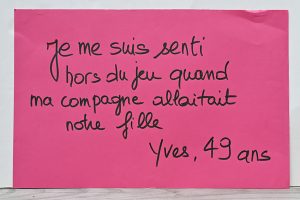 Je me suis senti
hors du jeu quand
ma compagne allaitait
notre fille
Yves, 49 ans